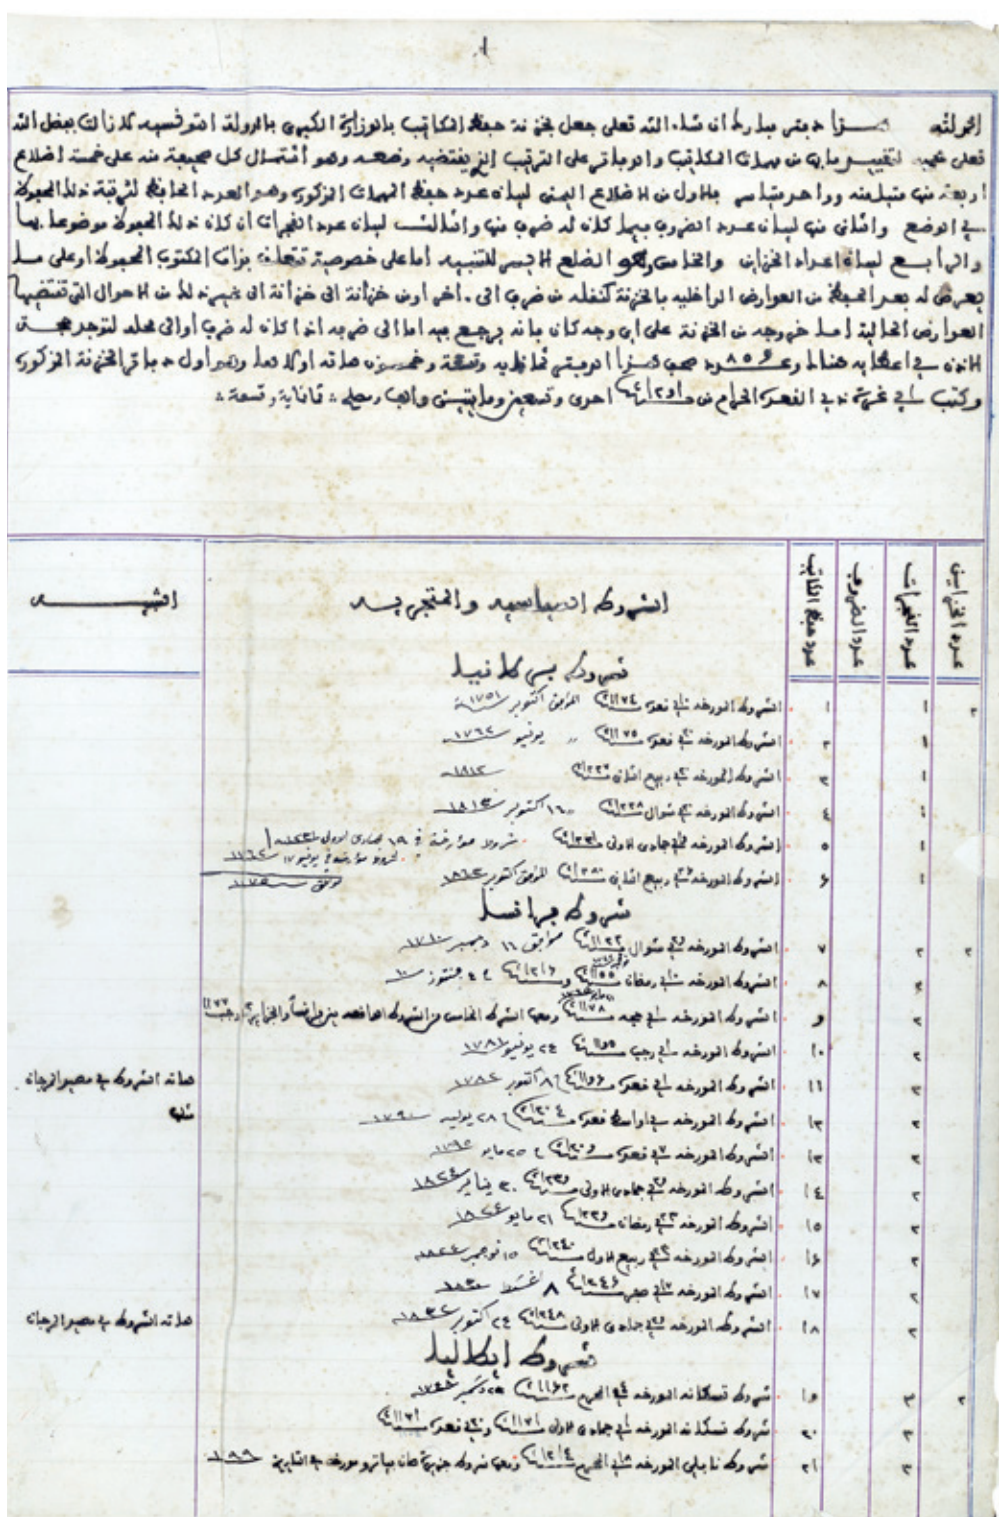 ١
الحمد لله هذا دفتر مبارك ان شاء الله تعلى جعل بخزنة حفظ المكاتب بالوزارة الكبرى بالدولة التونسية لا زالت بفضل الله
تعلى محمية لتقييد ما بها من مهمات المكاتيب والدفاتر على الترتيب الذي يقتضيه وضعه وهو اشتمال كل صحيفة منه على خمسة اضلاع
اربعة منها متيامنة وواحد متياسر فالاول من الاضلاع اليمنى لبيان عدد حفظ المهمات المذكورة وهو العدد الحافظ لترقية تلك المحفوظة
في الوضع والثاني منها لبيان عدد الضروب فيما كان له ضرب منها والثالث لبيان عدد الفجرات ان كان تلك المحفوظة موضوعا بها
والرابع لبيان اعداد الخزاين والخامس وهو الضلع الايسر للتنبيه اما على خصوصية تتعلق بذات المكتوب المحفوظ او على ما
يعرض له بعد الحفظ من العوارض الداخلية بالخزنة كنقله من ضرب الى اخر او من خزانة الى خزانة الى غير ذلك من الاحوال التي تقتضيها
العوارض الحالية اما خروجه من الخزنة على اي وجه كان بانه يرجع فيه اما الى ضربه اذا كان له ضرب او الى محله لتوجد حجة
الاذن في اعطايه هنالك وعدد ٨٥٩ صحب هذا الدفتر ثمانماية وتسعة وخمسون هاته اولاها وهو اول دفاتر الخزنة المذكورة
وكتب في غرة ذي القعدة الحرام من سنة ١٢٩١ احدى وتسعين ومايتين والف وصلح ثمانماية وتسعة
عدد الخزاين
عدد الفجرات
عدد الضروب
عدد حفظ المكاتب
الشروط السياسية والمتجرية
التنبيه
شروط بريطانيا
٢ ١ ١ الشروط المورخة في قعدة سنة ١١٧٤ الموافق اكتوبر سنة ١٧٥١
١ ٢ الشروط المورخة في قعدة سنة ١١٧٥ يونيو سنة ١٧٦٢
١ ٣ الشروط المورخة في ربيع الثاني سنة ١٢٢٧ سنة ١٨١٢
١ ٤ الشروط المورخة في شوال سنة ١٢٢٨ ١٦ اكتوبر سنة ١٨١٣
١ ٥ الشروط المورخة في جمادى الاولى سنة ١٢٣١ شروط مؤرخة في ١٩ جمادى الاولى
شروط مؤرخة في يونيو ١٧ سنة ١٧٦٢
١ ٦ الشروط المورخة في ربيع الثاني سنة ١٢٨٠ الموافق اكتوبر سنة ١٨٦٣
شروط فرانسا
٢ ٢ ٧ الشروط المورخة في شوال سنة ١١٢٢ موافق ١٦ دجمبر سنة ١٧١٠
٢ ٨ الشروط المورخة في رمضان سنة ١١٥٥ وسنة ١٢١٦
٢ ٩ الشروط المورخة في حجة سنة ١١٧٨ ومعها الشرط الخامس من الشروط
٢ ١٠ الشروط المورخة في رجب سنة ١١٩٥ ٢٤ يونيو سنة ١٧٨١
٢ ١١ الشروط المورخة في قعدة سنة ١١٩٦ ٨ اكتوبر سنة ١٧٨٢ هاته الشروط في مصير الرجان
مثله
٢ ١٢ الشروط المورخة في اواسط قعدة سنة ١٢٠٤ ٢٨ يوليه سنة ١٧٩٠
٢ ١٣ الشروط المورخة في قعدة سنة ١٢٠٩ ٢٥ مايو سنة ١٧٩٥
٢ ١٤ الشروط المورخة في جمادى الاولى سنة ١٢٣٩ ٣٠ يناير سنة ١٨٢٤
٢ ١٥ الشروط المورخة في رمضان سنة ١٢٣٩ ٢١ مايو سنة ١٨٢٤
٢ ١٦ الشروط المورخة في ربيع الاول سنة ١٢٤٠ ١٥ نوفمبر سنة ١٨٢٤
٢ ١٧ الشروط المورخة في صفر سنة ١٢٤٦ ٨ اغشت سنة ١٨٣٠
٢ ١٨ الشروط المورخة في جمادى الاولى سنة ١٢٤٨ ٢٤ اكتوبر سنة ١٨٣٢ هاته الشروط في مصير الرجان
شروط ايطاليا
٢ ٣ ١٩ شروط تسكانه المورخة في المحرم سنة ١١٦٢ ٢٣ دسمبر سنة ١٧٤٨
٣ ٢٠ شروط تسكانه المورخة في جمادى الاولى سنة ١١٧١ وفي قعدة سنة ١١٧١
٣ ٢١ شروط نابلي المورخة في المحرم سنة ١٢١٤ ومعها شروط